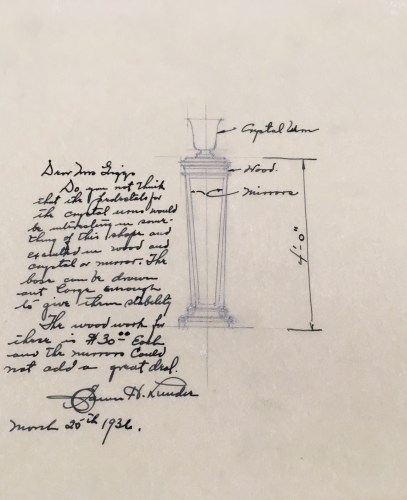 Crystal Urn
Wood.
Mirrors
4'-0"
Dear Mrs Griggs
Do you not think
that the pedestals for
the crystal urns would
be interesting in some-
thing of this shape and
executed in wood and
crystal or mirror. The
base can be drawn
out large enough
to give them stability
The wood work for
these is $30.00 Each
and the mirrors could
not add a great deal.
H. Kunder
March 25th 1936.